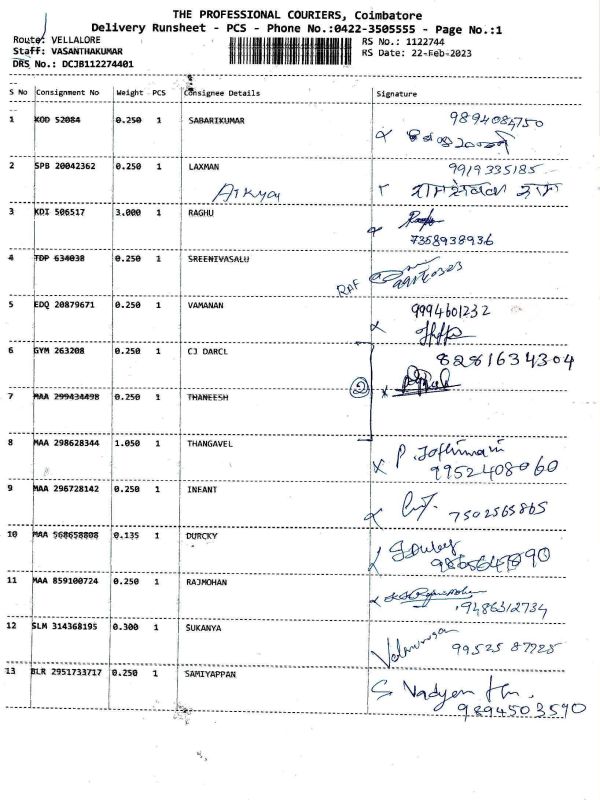 THE PROFESSIONAL COURIERS, Coimbatore
Delivery Runsheet - PCS - Phone No.:0422-3505555 - Page No.:1
Route: VELLALORE
RS No.: 1122744
Staff: VASANTHAKUMAR
RS Date: 22-Feb-2023
DRS No.: DCJB112274401
S No Consignment No Weight PCS Consignee Details Signature
1 KOD 52084 0.250 1 SABARIKUMAR 9894084750
2 SPB 20042362 0.250 1 LAXMAN 9919335185
3 KDI 506517 3.000 1 RAGHU
7358938936
4 TDP 634038 0.250 1 SREENIVASALU
RAF
5 EDQ 20879671 0.250 1 VAMANAN 9994601232
6 GYM 263208 0.250 1 CJ DARCL 8281634304
2
7 MAA 299434498 0.250 1 THANEESH
8 MAA 298628344 1.050 1 THANGAVEL
9952408060
9 MAA 296728142 0.250 1 INFANT
7502565865
10 MAA 568658808 0.135 1 DURCKY
11 MAA 859100724 0.250 1 RAJMOHAN
9486312734
12 SLM 314368195 0.300 1 SUKANYA
13 BLR 2951733717 0.250 1 SAMIYAPPAN
9894503590